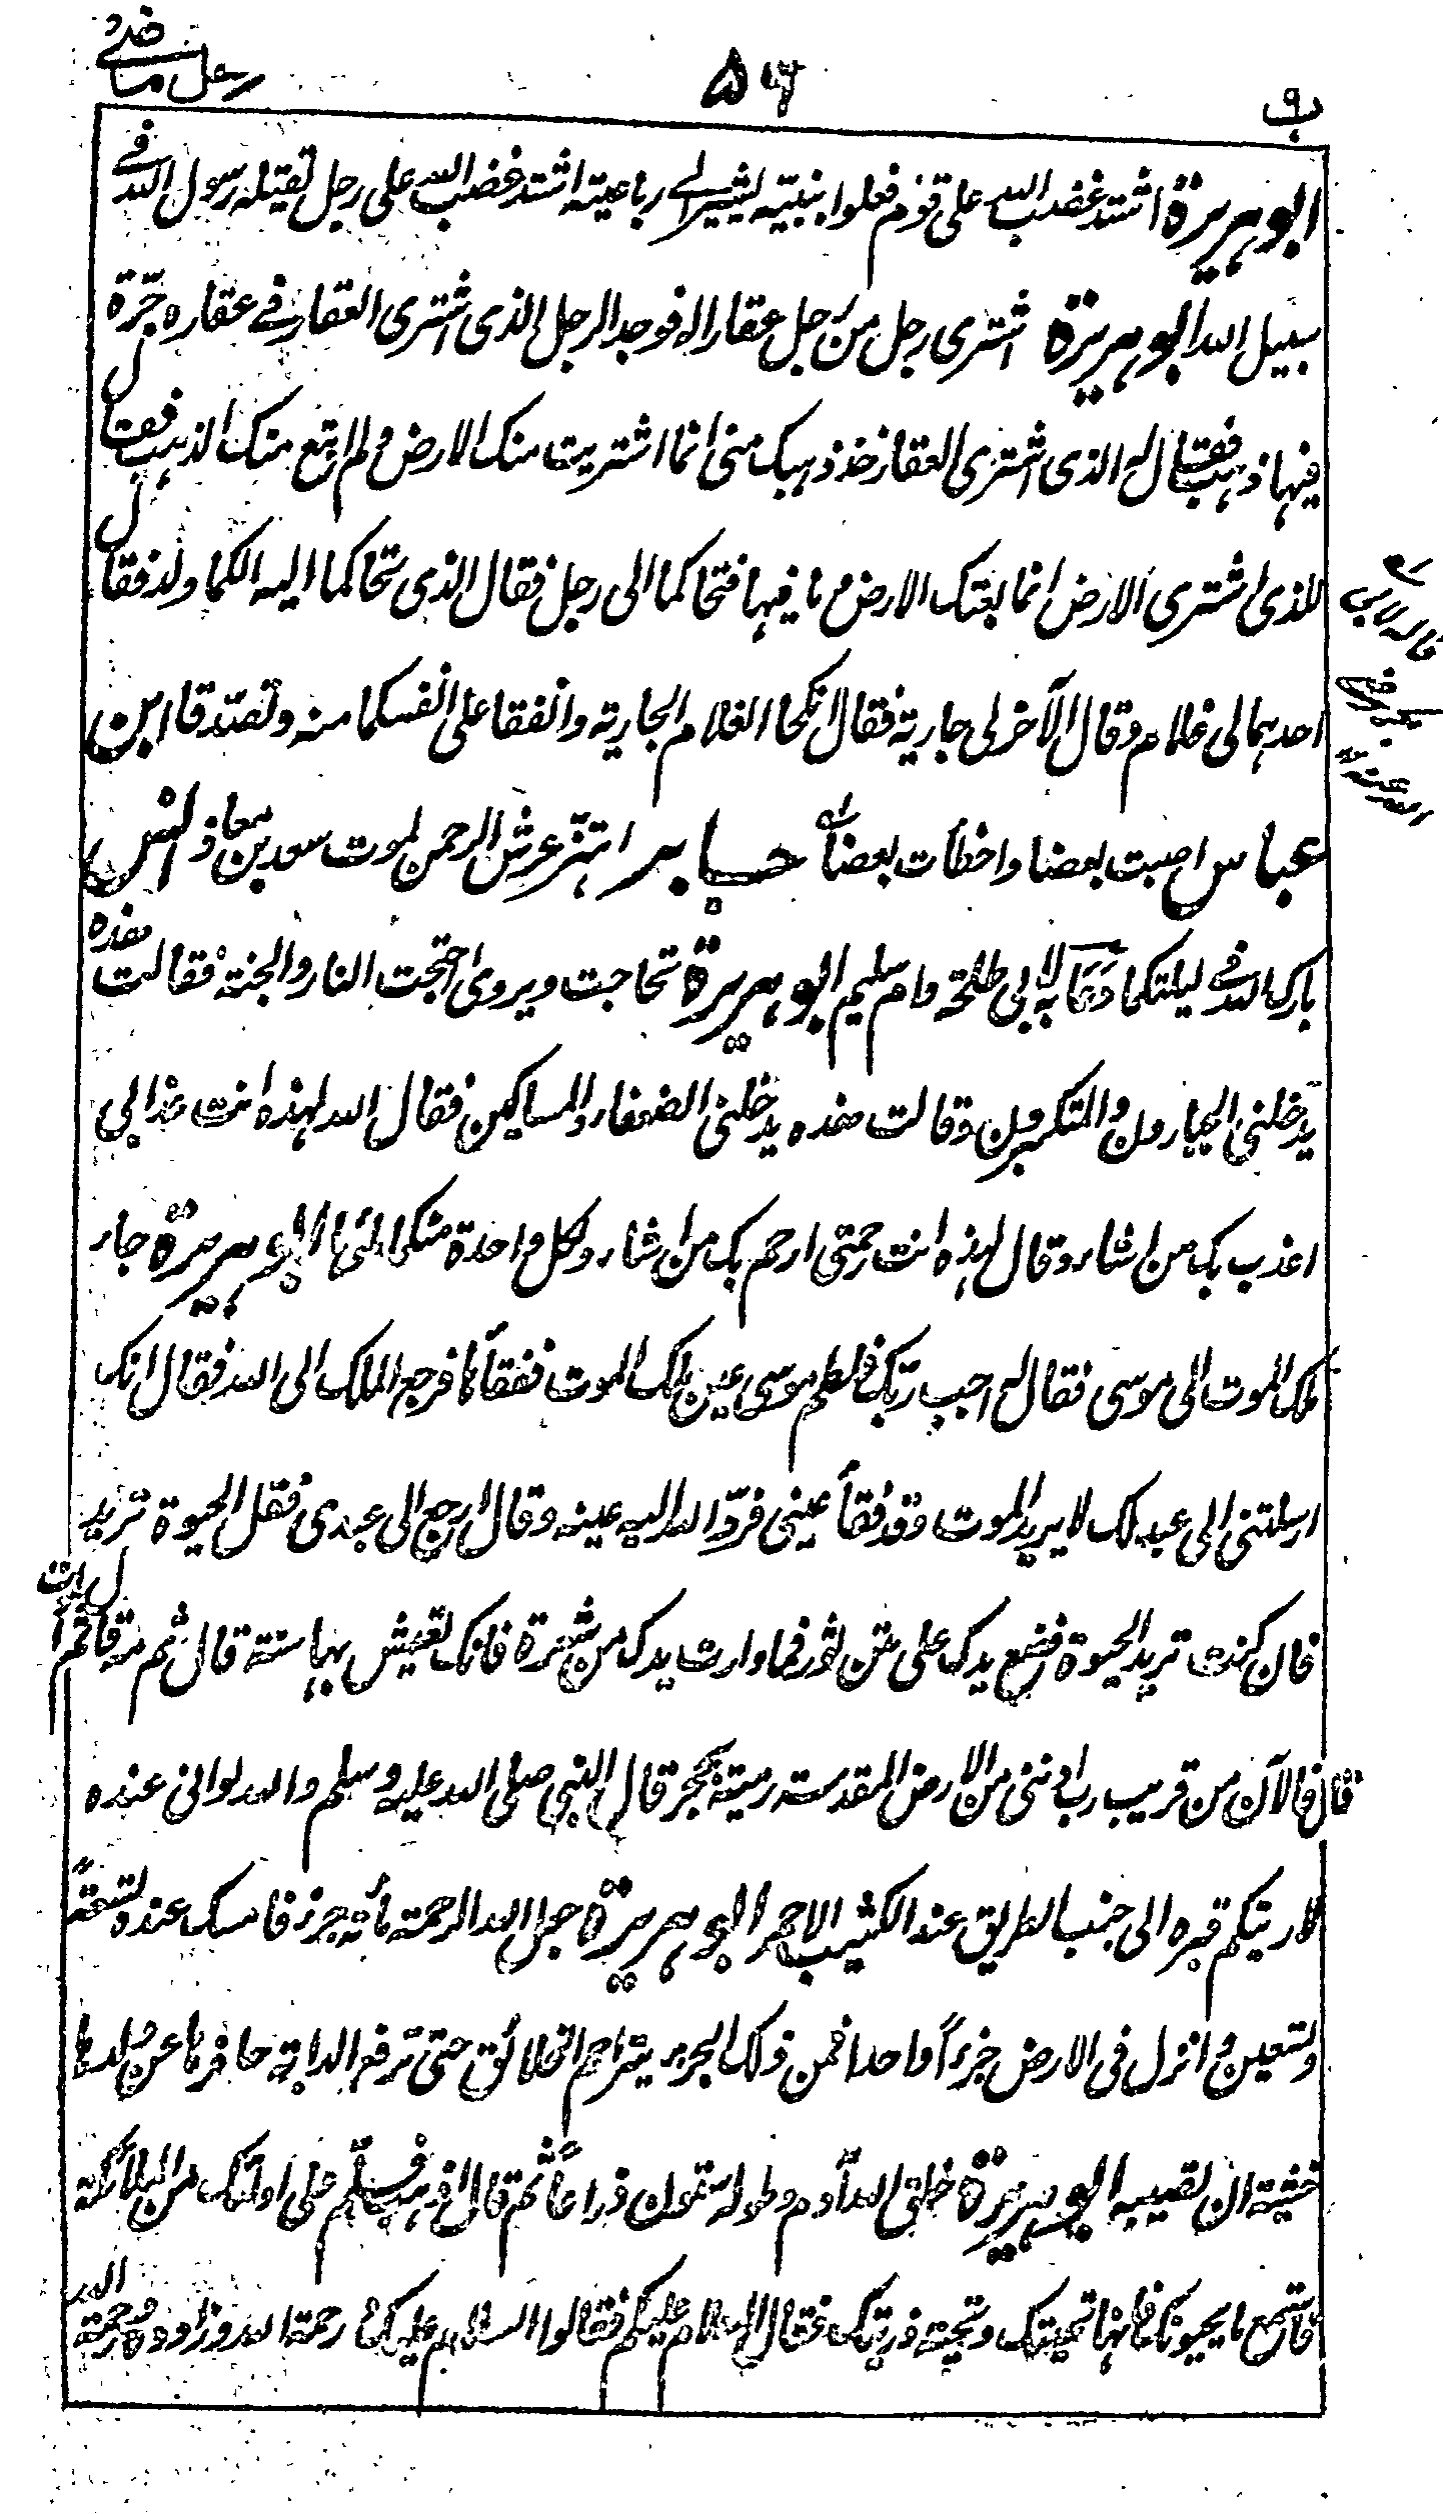 فعل ماضی
۵۶
ب ۹
ابو ہریرة اشتد غضب الله علی قوم فعلوا بنبیه یشیر الی رباعیته اشتد غضب الله علی رجل یقتله رسول الله فی
سبیل الله ابو ہریرة اشتری رجل من رجل عقارا له فوجد الرجل الذی اشتری العقار فی عقاره جرّة
فیہا ذہب فقال له الذی اشتری العقار خذ ذہبک منی انما اشتریت منک الارض و لم ابتع منک الذہب فقال
للذی اشتری الارض انما بعتک الارض و ما فیہا فتحاکما الی رجل فقال الذی تحاکما الیه الکما ولد فقال
احدہما لی غلام وقال الآخر لی جاریة فقال انکحا الغلام الجاریة وانفقا علی انفسکما منه وتصدّقا ابن
عباس اصبت بعضا واخطأت بعضاً جابر اہتزّ عرش الرحمن لموت سعد بن معاذ انس
قاله لابی بکر رضی الله عنه
بارک الله فی لیلتکما دعا به لابی طلحة وام سلیم ابو ہریرة تحاجت ویروی احتجت النار والجنة فقالت ہذه
یدخلنی الجبارون والمتکبرون وقالت ہذه یدخلنی الضعفاء والمساکین فقال الله لہذه انت عذابی
اعذب بک من اشاء وقال لہذه انت رحمتی ارحم بک من اشاء ولکل واحدة منکما ملؤہا ابو ہریرة جاء
ملک الموت الی موسی فقال له اجب ربّک فلطم موسی عین ملک الموت ففقأہا فرجع الملک الی الله فقال انک
ارسلتنی الی عبد لک لا یرید الموت وقد فقأ عینی فردّ الله الیه عینه وقال ارجع الی عبدی فقل الحیوة ترید
فان کنت ترید الحیوة فضع یدک علی متن ثور فما وارت یدک من شعرة فانک تعیش بہا سنة قال ثم مه قال ثم تموت
قال فالآن من قریب رب ادننی من الارض المقدسة رمیة بحجر قال النبی صلی الله علیه وسلم والله لو انی عنده
لاریتکم قبره الی جنب الطریق عند الکثیب الاحمر ابو ہریرة جعل الله الرحمة مأیة جزء فامسک عنده تسعةً
وتسعین وانزل فی الارض جزءاً واحدا فمن ذلک الجزء یتراحم الخلائق حتی ترفع الدابة حافرہا عن ولدہا
خشیة ان تصیبه ابو ہریرة خلق الله آدم وطوله ستون ذراعاً ثم قال اذہب فسلّم علی اولئک من الملائکة
فاستمع ما یحیونک فانہا تحیتک وتحیة ذریتک فقال السلام علیکم فقالوا السلام علیک و رحمة الله وزادوه ورحمة الله